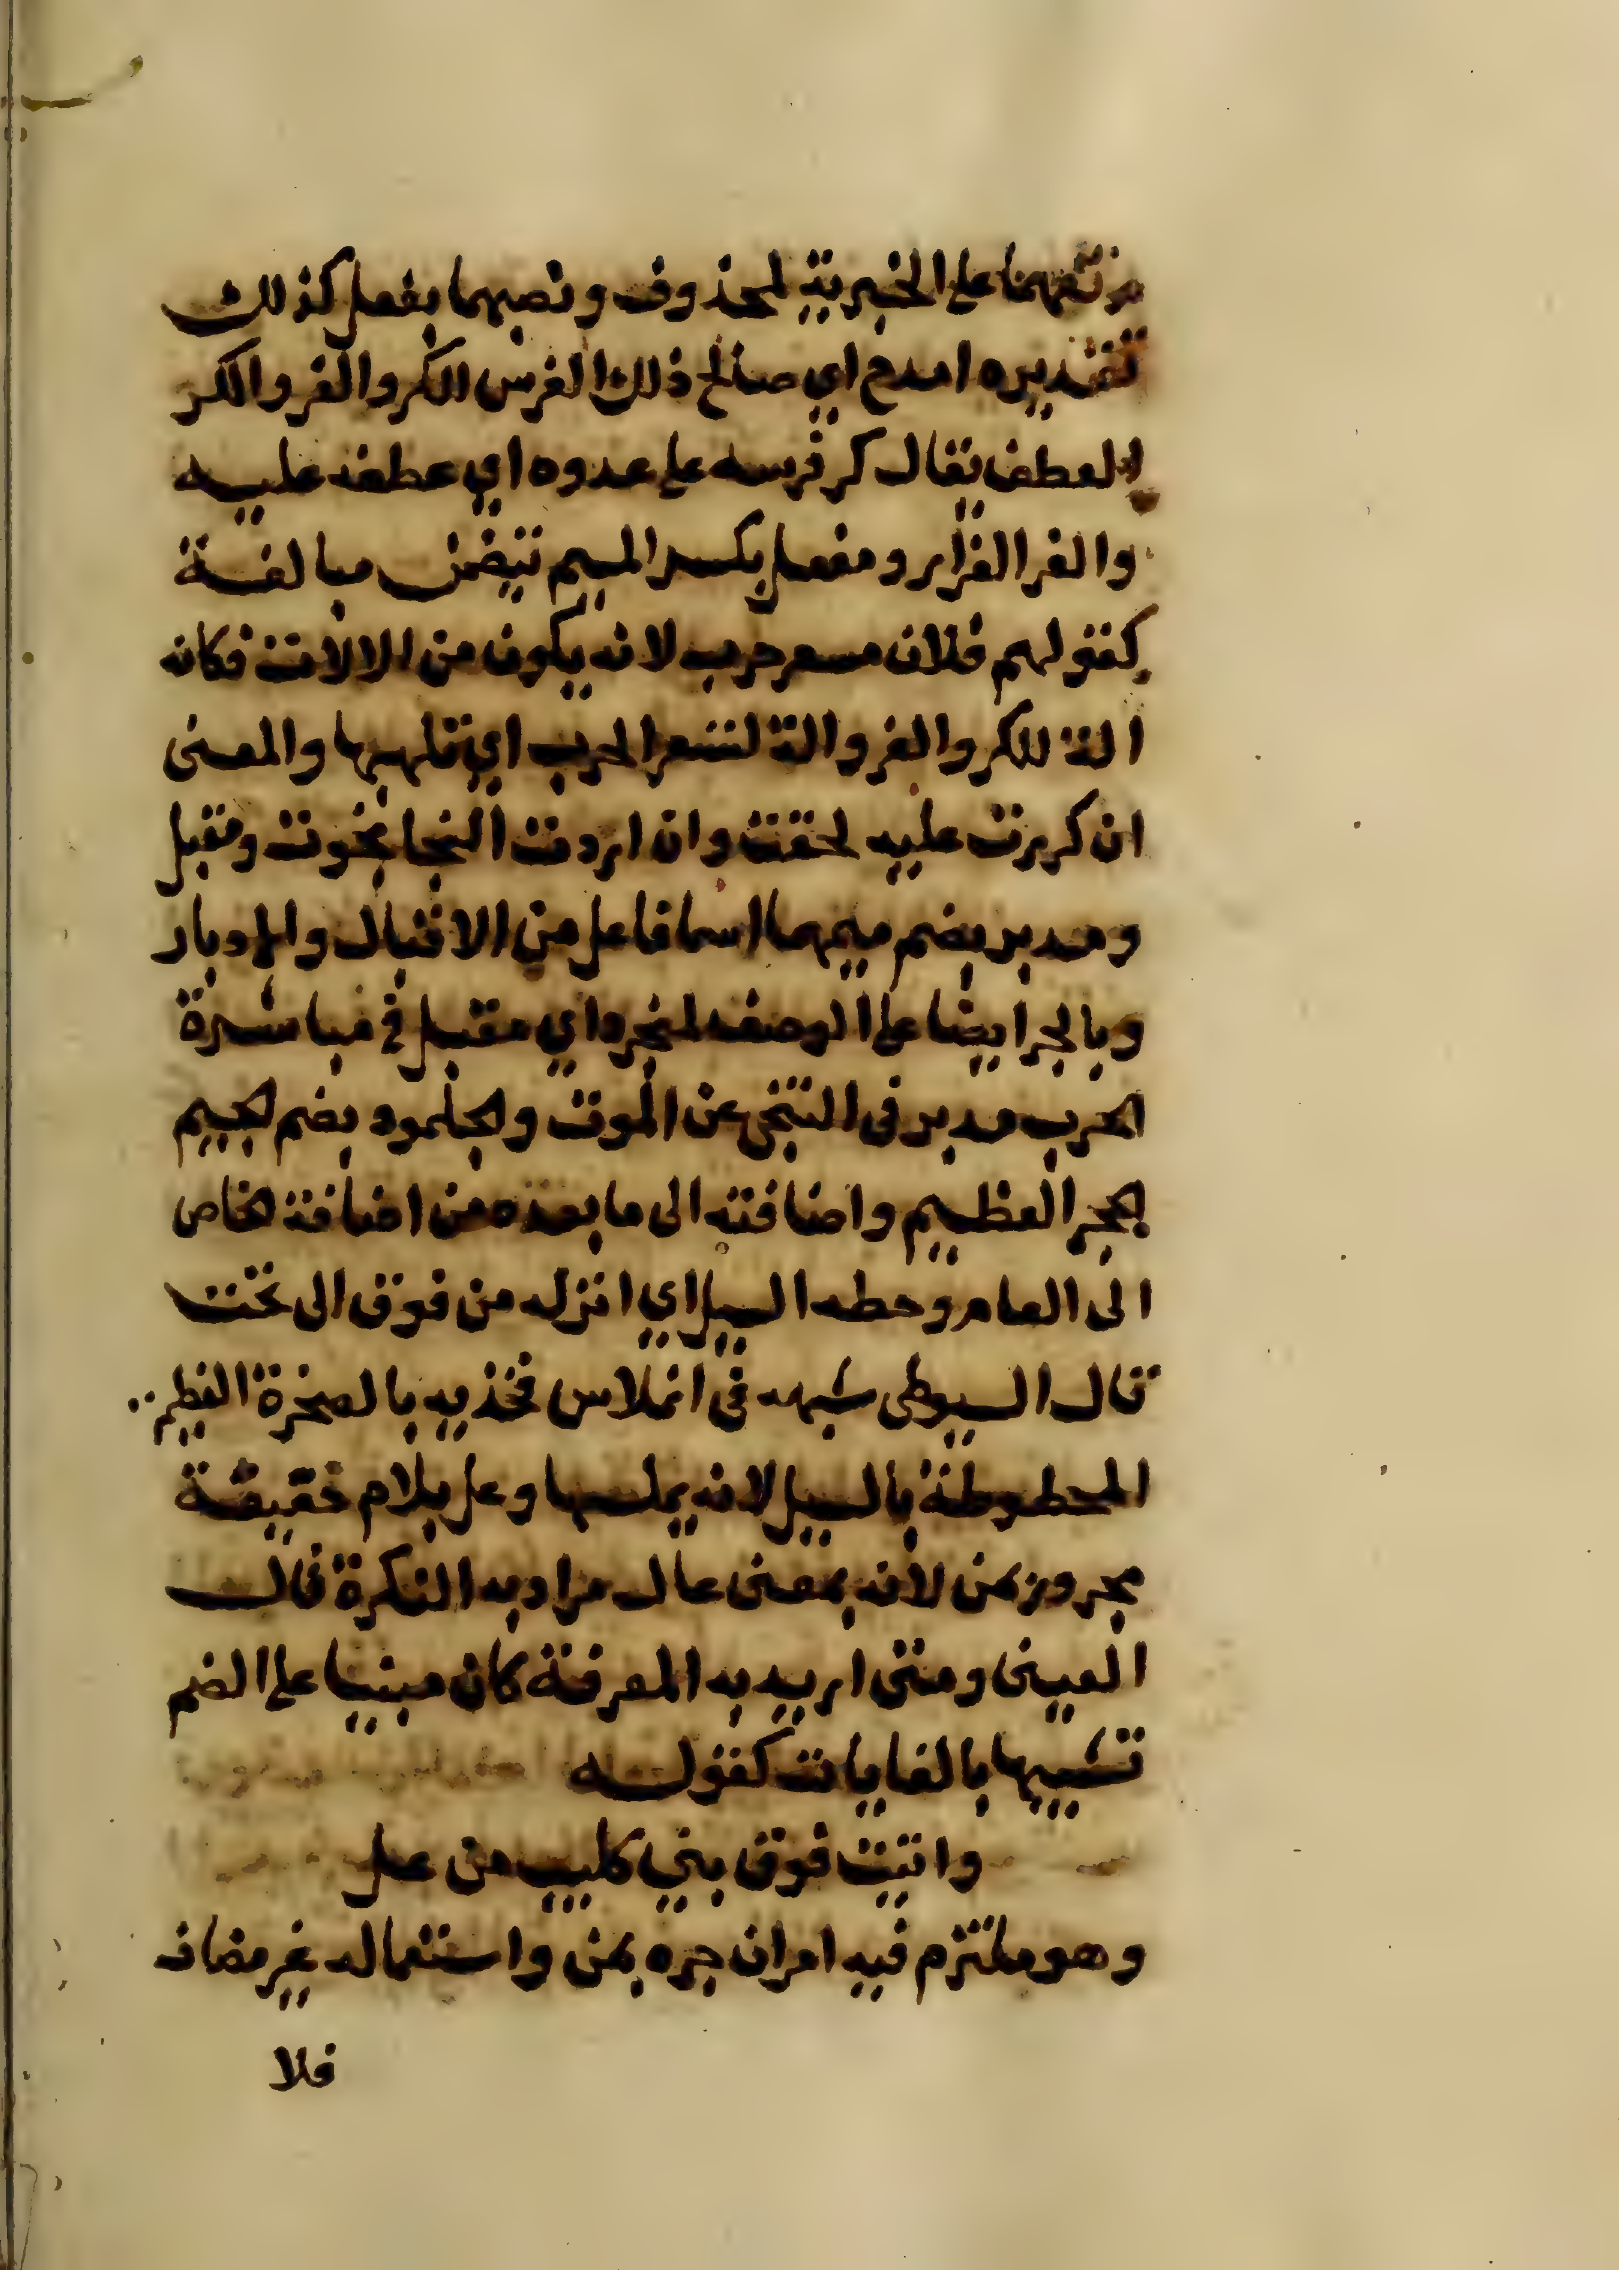 مرتفعهما على الخبرية لمحذوف ونصبهما بفعل كذلك
تقديره امدح اي صالح ذلك الفرس للكر والفر والكر
العطف يقال كر فرسه على عدوه اي عطفه عليه
والفر الفرار ومفعل بكسر الميم تتضمن مبالغة
كقولهم فلان مسعر حرب لانه يكون من الالات فكانه
الة للكر والفر والة لتسعر الحرب اي تلهبها والمعنى
ان كررت عليه لحقت وان اردت النجا نجوت ومقبل
ومدبر بضم ميمهما اسما فاعل من الاقبال والادبار
وبالجر ايضا على الوصفه لمنجرد اي مقبل في مباشرة
الحرب مدبر في التنحي عن الموت والجلمود بضم الجيم
الحجر العظيم واضافته الى ما بعده من اضافة الخاص
الى العام وحطه السيل اي انزله من فوق الى تحت
قال السيوطي شبهه في انملاس فخذيه بالصخرة العظيم..
المحطوطة بالسيل لانه يملسها وعل بلام خفيفة
مجرور بمن لانه بمعنى عال مرادبه النكرة قال
العيني ومتى اريد به المعرفة كان مبنيا على الضم
تشبيها بالغايات كقوله
واتيت فوق بني كليب من عل
وهو ملتزم فيه امران جره بمن واستعماله غير مضاف
فلا